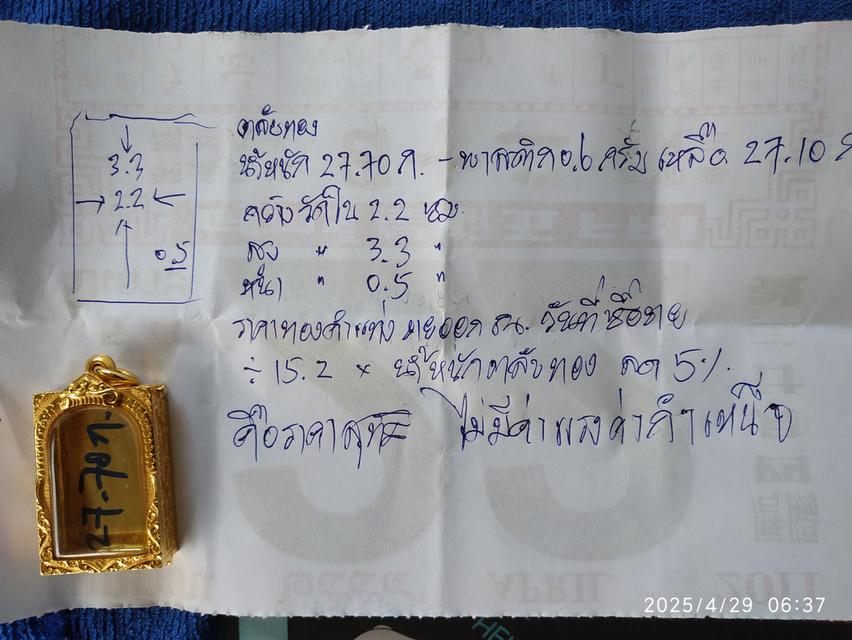 ตลับทอง
น้ำหนัก 27.70 ก. - พาสติก 0.6 ครัม เหลือ 27.10 ก
กว้าง วัดใน 2.2 ซม.
สูง " 3.3 "
หนา " 0.5 "
ราคาทองคำแท่ง ขายออก สน. วันที่ซื้อขาย
÷ 15.2 x น้ำหนักตลับทอง ลด 5%
คือราคาสุทธิ ไม่มีค่าแรงค่ากำเหน็จ
3.3
2.2
0.5
27.70 ก.
๒๕๕๔
APRIL
2011
2025/4/29 06:37